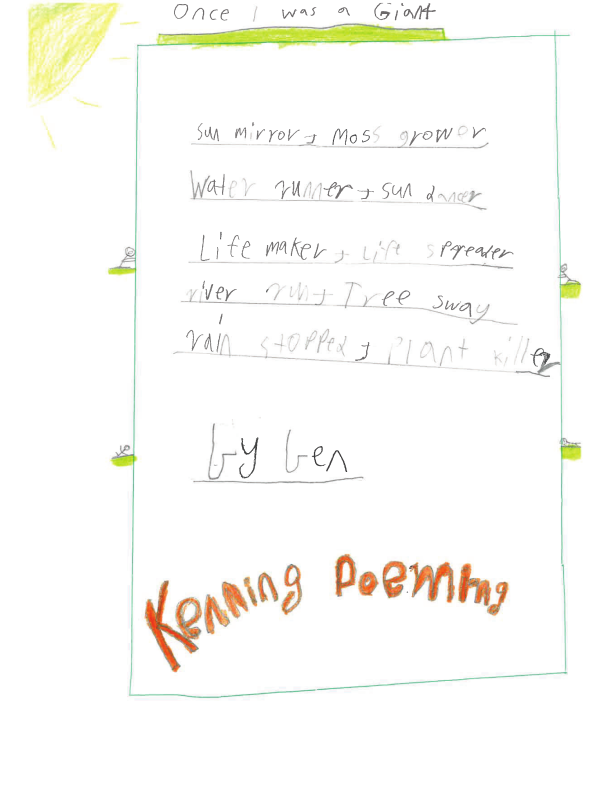 Once I was a Giant
sun mirror + moss grower
Water runner + sun dancer
Life maker + Life spreader
river run + Tree sway
rain stopped + plant killer
by ben
Kenning Poeming